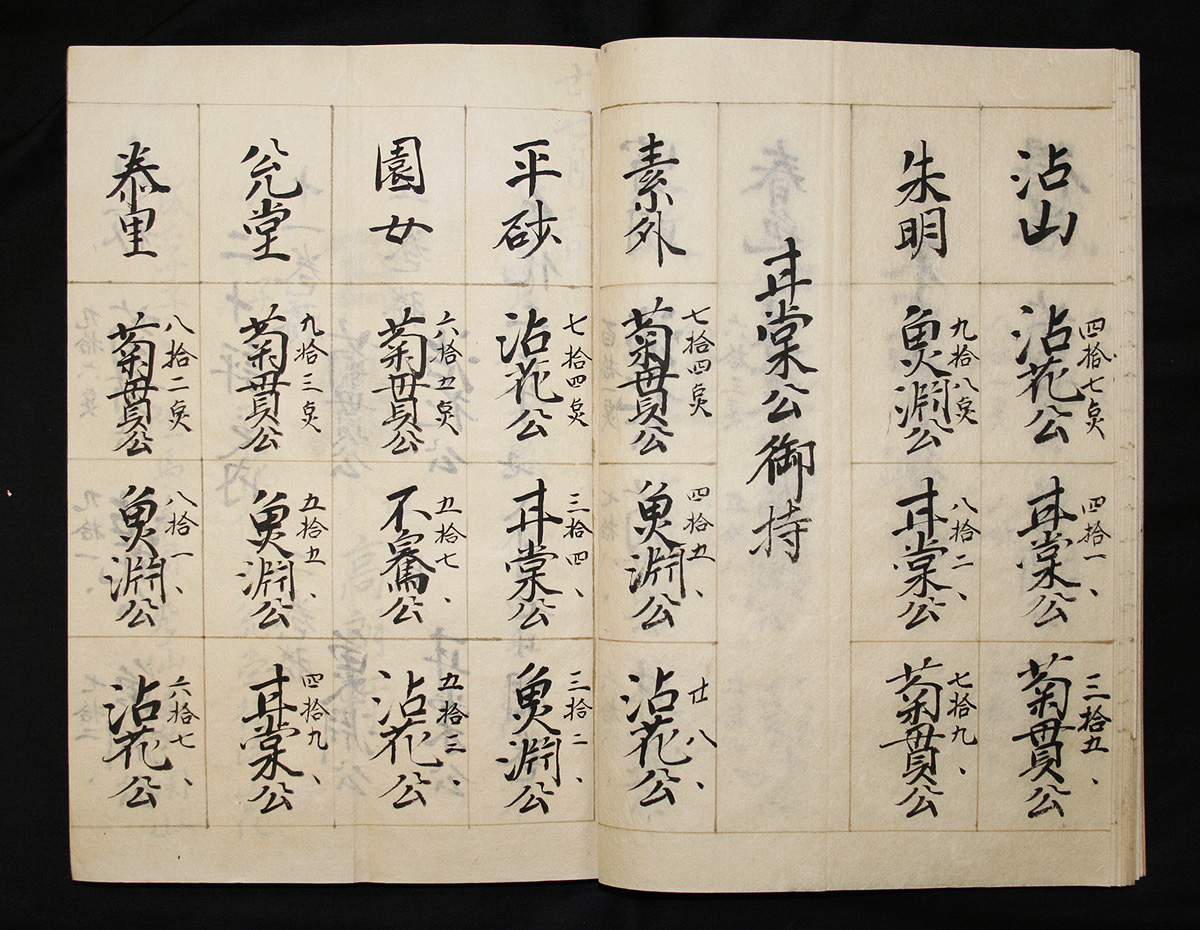 沾山
四拾七奌
沾花公
四拾一、
甘棠公
三拾五、
菊貫公
朱明
九拾八奌
魚淵公
八拾二、
甘棠公
七拾九、
菊貫公
甘棠公御持
素外
七拾四奌
菊貫公
四拾五、
魚淵公
廿八、
沾花公
平砂
七拾四奌
沾花公
三拾四、
甘棠公
三拾二、
魚淵公
園女
六拾五奌
菊貫公
五拾七、
不騫公
五拾三、
沾花公
兊堂
九拾三奌
菊貫公
五拾五、
魚淵公
四拾九、
甘棠公
泰里
八拾二奌
菊貫公
八拾一、
魚淵公
六拾七、
沾花公